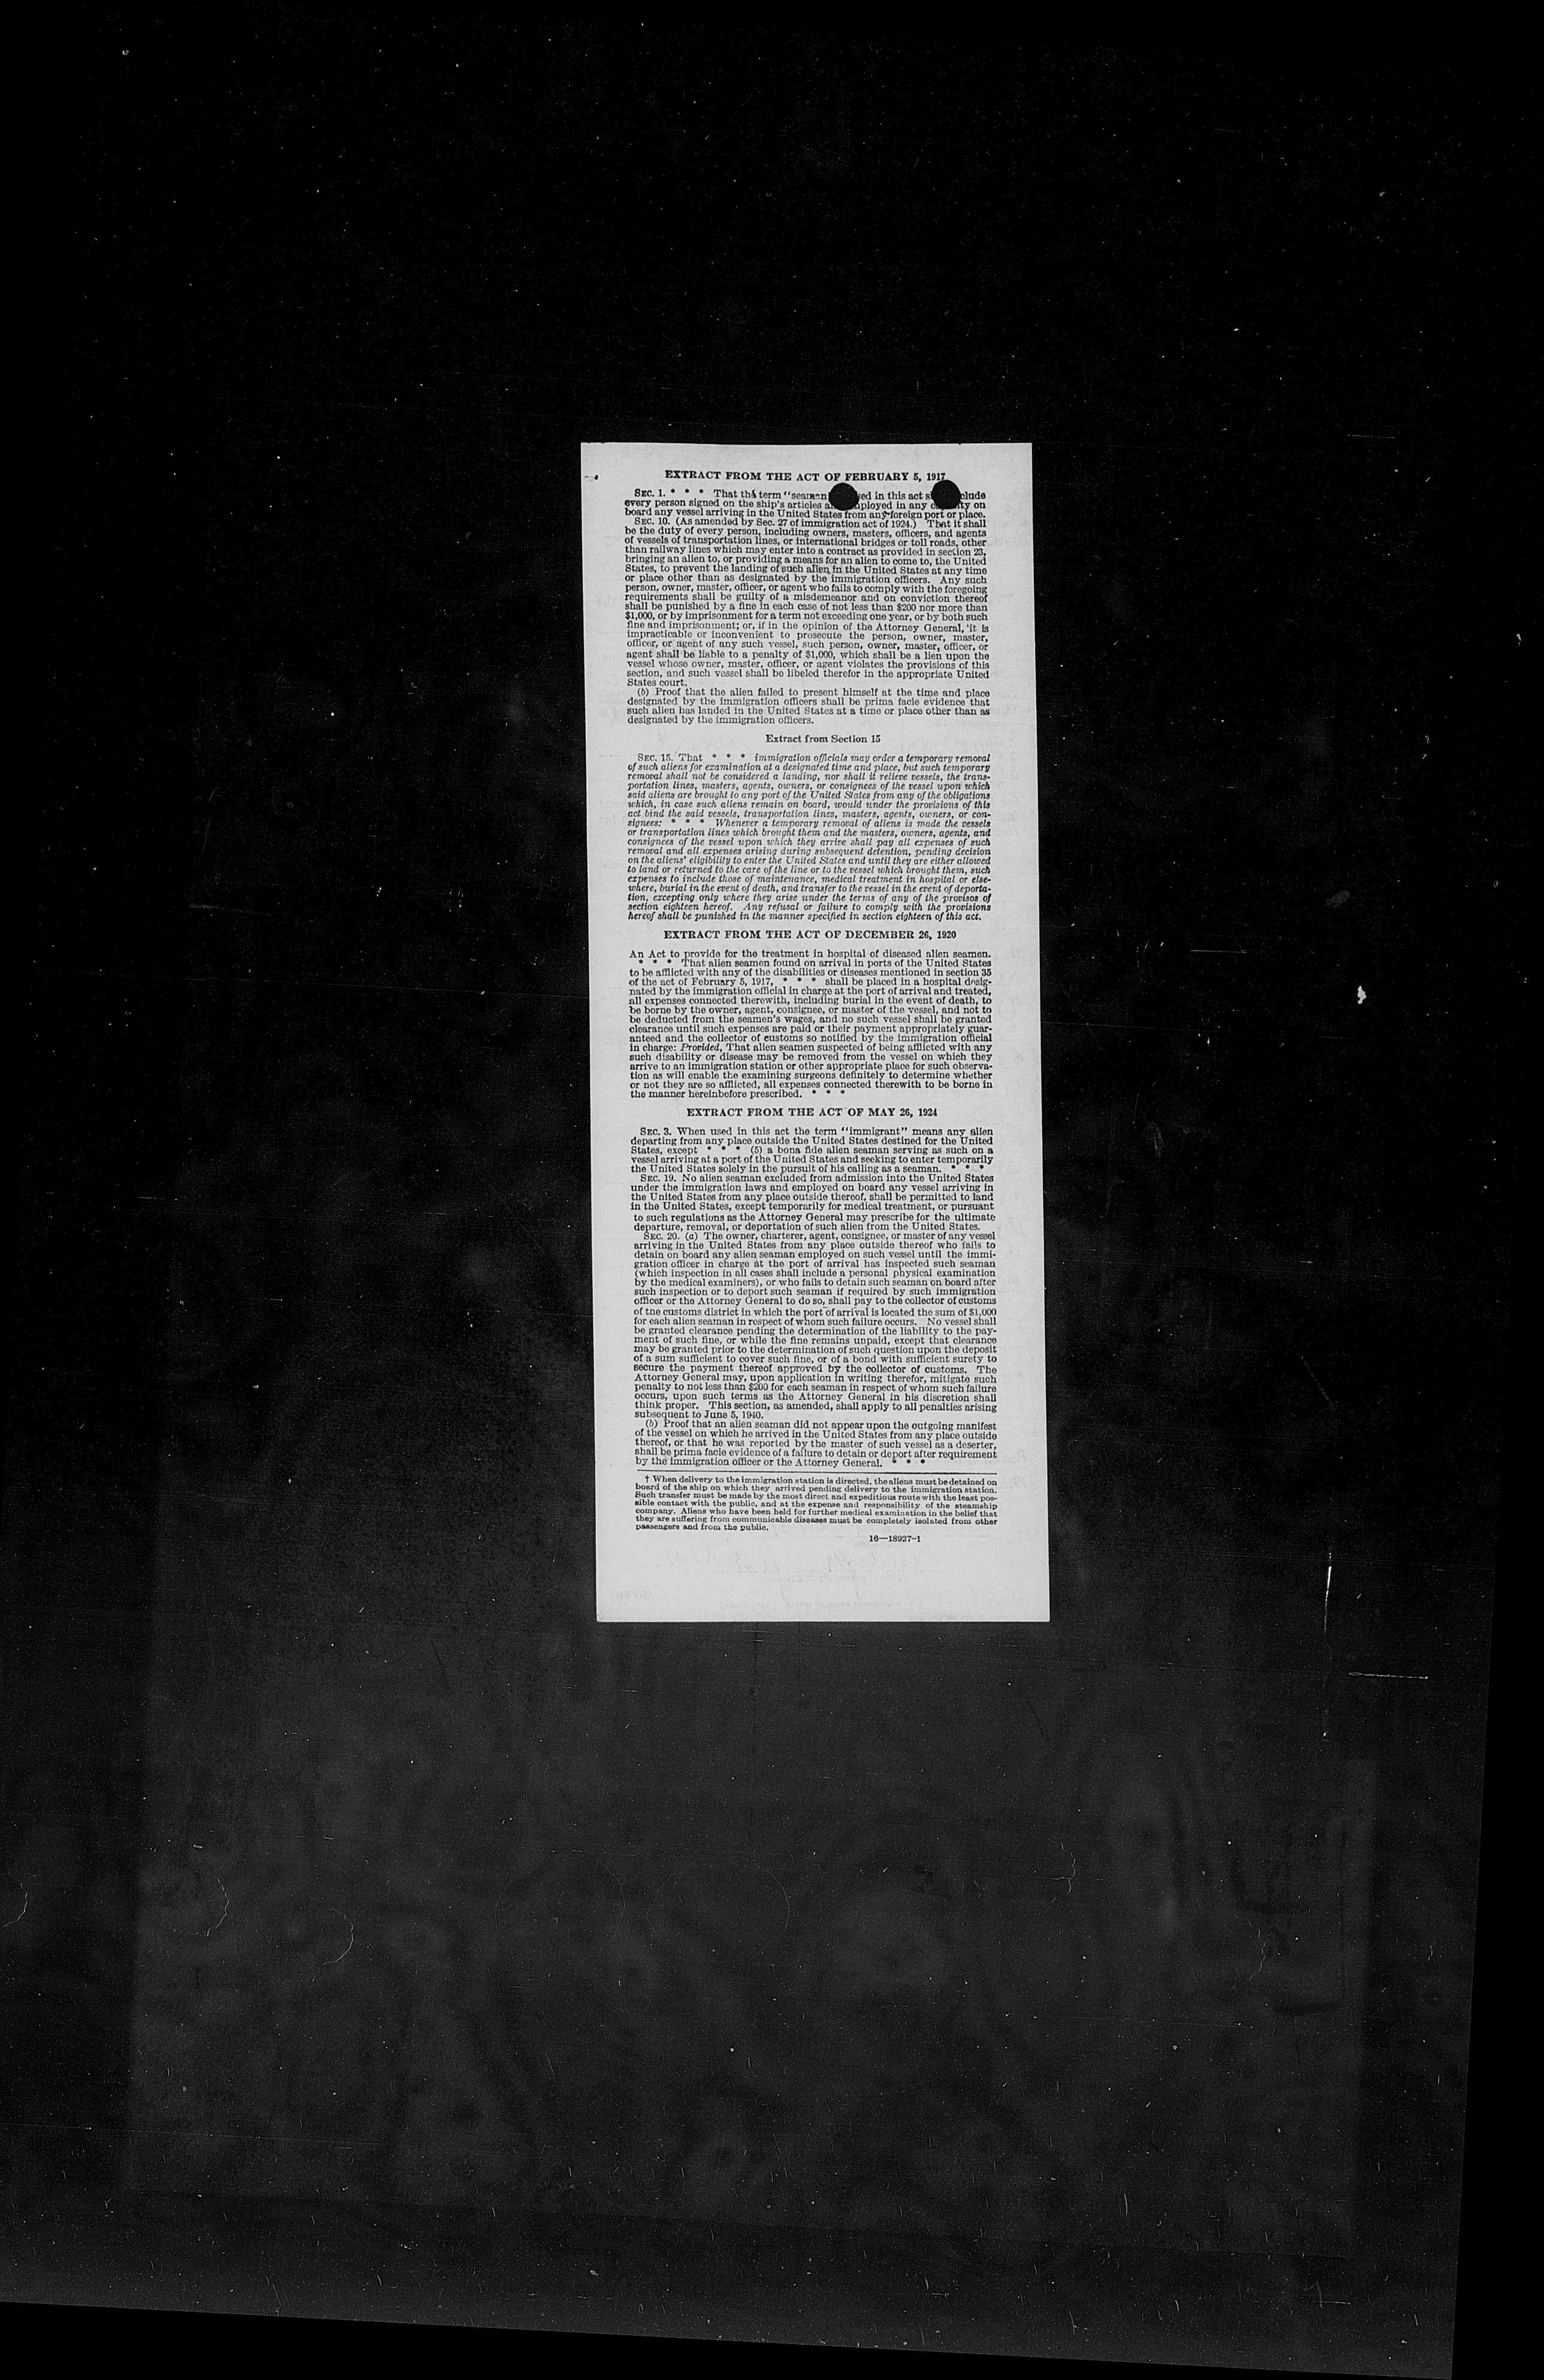 EXTRACT FROM THE ACT OF FEBRUARY 5, 1917
SEC. 1. * * * That the term "seaman ed in this act s clude
every person signed on the ship's articles a ployed in any c ty on
board any vessel arriving in the United States from any foreign port or place.
SEC. 10. (As amended by Sec. 27 of immigration act of 1924.) That it shall
be the duty of every person, including owners, masters, officers, and agents
of vessels of transportation lines, or international bridges or toll roads, other
than railway lines which may enter into a contract as provided in section 23,
bringing an alien to, or providing a means for an alien to come to, the United
States, to prevent the landing of such alien in the United States at any time
or place other than as designated by the immigration officers. Any such
person, owner, master, officer, or agent who fails to comply with the foregoing
requirements shall be guilty of a misdemeanor and on conviction thereof
shall be punished by a fine in each case of not less than $200 nor more than
$1,000, or by imprisonment for a term not exceeding one year, or by both such
fine and imprisonment; or, if in the opinion of the Attorney General, it is
impracticable or inconvenient to prosecute the person, owner, master,
officer, or agent of any such vessel, such person, owner, master, officer, or
agent shall be liable to a penalty of $1,000, which shall be a lien upon the
vessel whose owner, master, officer, or agent violates the provisions of this
section, and such vessel shall be libeled therefor in the appropriate United
States court.
(b) Proof that the alien failed to present himself at the time and place
designated by the immigration officers shall be prima facie evidence that
such alien has landed in the United States at a time or place other than as
designated by the immigration officers.
Extract from Section 15
SEC. 15. That * * * immigration officials may order a temporary removal
of such aliens for examination at a designated time and place, but such temporary
removal shall not be considered a landing, nor shall it relieve vessels, the trans-
portation lines, masters, agents, owners, or consignees of the vessel upon which
said aliens are brought to any port of the United States from any of the obligations
which, in case such aliens remain on board, would under the provisions of this
act bind the said vessels, transportation lines, masters, agents, owners, or con-
signees: * * * Whenever a temporary removal of aliens is made the vessels
or transportation lines which brought them and the masters, owners, agents, and
consignees of the vessel upon which they arrive shall pay all expenses of such
removal and all expenses arising during subsequent detention, pending decision
on the aliens' eligibility to enter the United States and until they are either allowed
to land or returned to the care of the line or to the vessel which brought them, such
expenses to include those of maintenance, medical treatment in hospital or else-
where, burial in the event of death, and transfer to the vessel in the event of deporta-
tion, excepting only where they arise under the terms of any of the provisos of
section eighteen hereof. Any refusal or failure to comply with the provisions
hereof shall be punished in the manner specified in section eighteen of this act.
EXTRACT FROM THE ACT OF DECEMBER 26, 1920
An Act to provide for the treatment in hospital of diseased alien seamen.
* * * That alien seamen found on arrival in ports of the United States
to be afflicted with any of the disabilities or diseases mentioned in section 35
of the act of February 5, 1917, * * * shall be placed in a hospital desig-
nated by the immigration official in charge at the port of arrival and treated,
all expenses connected therewith, including burial in the event of death, to
be borne by the owner, agent, consignee, or master of the vessel, and not to
be deducted from the seamen's wages, and no such vessel shall be granted
clearance until such expenses are paid or their payment appropriately guar-
anteed and the collector of customs so notified by the immigration official
in charge: Provided, That alien seamen suspected of being afflicted with any
such disability or disease may be removed from the vessel on which they
arrive to an immigration station or other appropriate place for such observa-
tion as will enable the examining surgeons definitely to determine whether
or not they are so afflicted, all expenses connected therewith to be borne in
the manner hereinbefore prescribed. * * *
EXTRACT FROM THE ACT OF MAY 26, 1924
SEC. 3. When used in this act the term "immigrant" means any alien
departing from any place outside the United States destined for the United
States, except * * * (5) a bona fide alien seaman serving as such on a
vessel arriving at a port of the United States and seeking to enter temporarily
the United States solely in the pursuit of his calling as a seaman. * * *
SEC. 19. No alien seaman excluded from admission into the United States
under the immigration laws and employed on board any vessel arriving in
the United States from any place outside thereof, shall be permitted to land
in the United States, except temporarily for medical treatment, or pursuant
to such regulations as the Attorney General may prescribe for the ultimate
departure, removal, or deportation of such alien from the United States.
SEC. 20. (a) The owner, charterer, agent, consignee, or master of any vessel
arriving in the United States from any place outside thereof who fails to
detain on board any alien seaman employed on such vessel until the immi-
gration officer in charge at the port of arrival has inspected such seaman
(which inspection in all cases shall include a personal physical examination
by the medical examiners), or who fails to detain such seaman on board after
such inspection or to deport such seaman if required by such immigration
officer or the Attorney General to do so, shall pay to the collector of customs
of the customs district in which the port of arrival is located the sum of $1,000
for each alien seaman in respect of whom such failure occurs. No vessel shall
be granted clearance pending the determination of the liability to the pay-
ment of such fine, or while the fine remains unpaid, except that clearance
may be granted prior to the determination of such question upon the deposit
of a sum sufficient to cover such fine, or of a bond with sufficient surety to
secure the payment thereof approved by the collector of customs. The
Attorney General may, upon application in writing therefor, mitigate such
penalty to not less than $200 for each seaman in respect of whom such failure
occurs, upon such terms as the Attorney General in his discretion shall
think proper. This section, as amended, shall apply to all penalties arising
subsequent to June 5, 1940.
(b) Proof that an alien seaman did not appear upon the outgoing manifest
of the vessel on which he arrived in the United States from any place outside
thereof, or that he was reported by the master of such vessel as a deserter,
shall be prima facie evidence of a failure to detain or deport after requirement
by the immigration officer or the Attorney General. * * *
† When delivery to the immigration station is directed, the aliens must be detained on
board of the ship on which they arrived pending delivery to the immigration station.
Such transfer must be made by the most direct and expeditious route with the least pos-
sible contact with the public, and at the expense and responsibility of the steamship
company. Aliens who have been held for further medical examination in the belief that
they are suffering from communicable diseases must be completely isolated from other
passengers and from the public.
16—18927-1